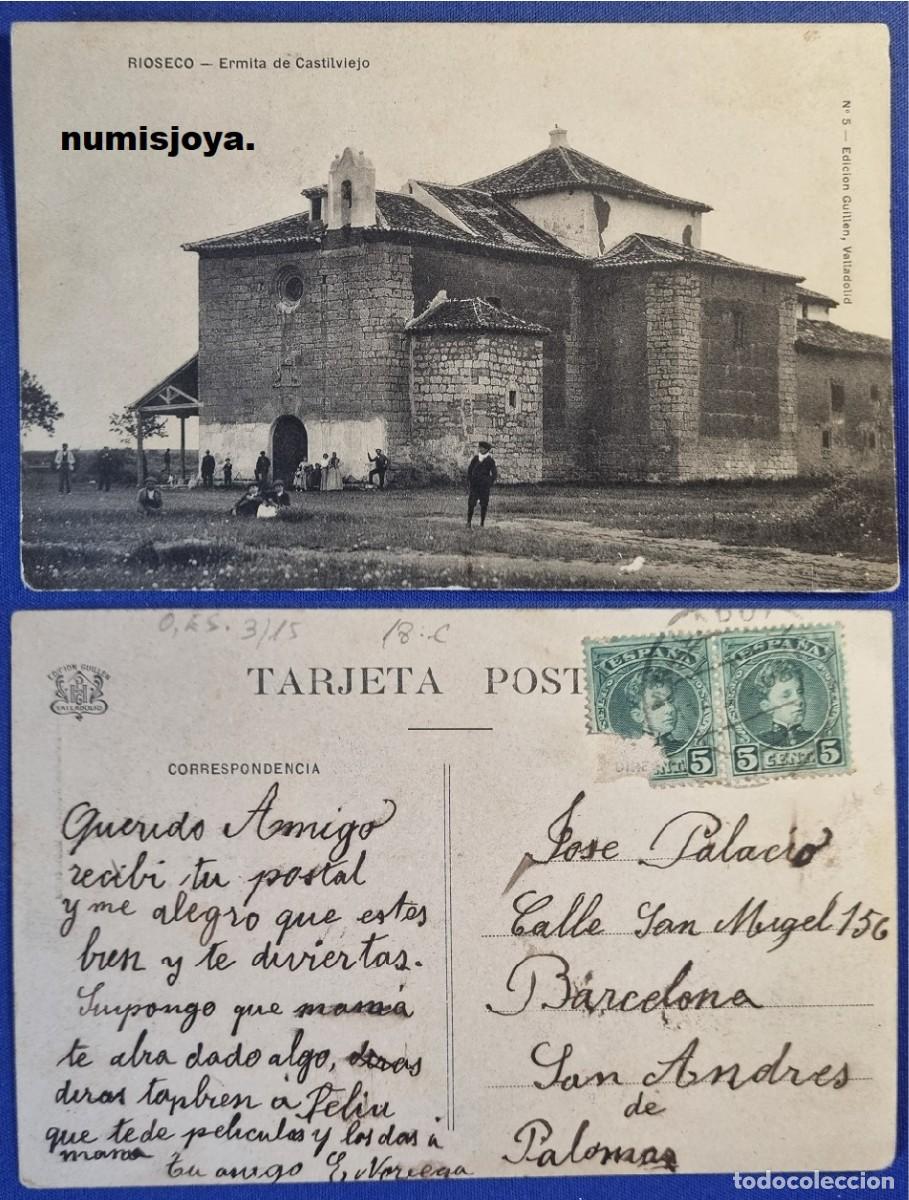 RIOSECO — Ermita de Castilviejo
numisjoya.
Nº 5 — Edicion Guillen, Valladolid
O, ES. 3/15
18.-C
EDICION GUILLEN
VALLADOLID
TARJETA POST
ESPAÑA
5
ESPAÑA
5 CENT. 5
CORRESPONDENCIA
Querido Amigo
recibi tu postal
y me alegro que estes
bien y te diviertas.
Supongo que mamá
te abra dado algo,
diras tanbien á Peliu
que te de peliculas y las das á
mama
Tu amigo E, Noriega
Jose Palacio
Calle San Migel 156
Barcelona
San Andres
de
Palomar
todocoleccion